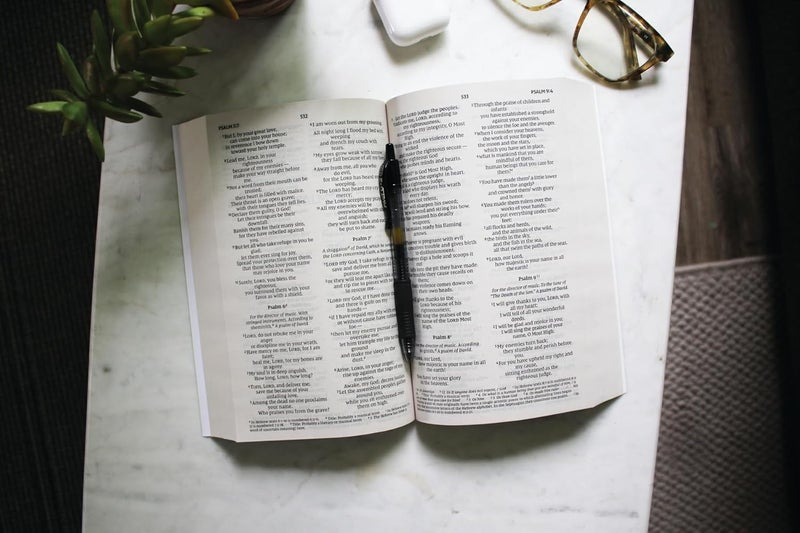 PSALM 5:7
532
⁷But I, by your great love,
can come into your house;
in reverence I bow down
toward your holy temple.
⁸Lead me, LORD, in your
righteousness
because of my enemies—
make your way straight before
me.
⁹Not a word from their mouth can be
trusted;
their heart is filled with malice.
Their throat is an open grave;
with their tongues they tell lies.
¹⁰Declare them guilty, O God!
Let their intrigues be their
downfall.
Banish them for their many sins,
for they have rebelled against
you.
¹¹But let all who take refuge in you be
glad;
let them ever sing for joy.
Spread your protection over them,
that those who love your name
may rejoice in you.
¹²Surely, LORD, you bless the
righteous;
you surround them with your
favor as with a shield.
Psalm 6
For the director of music. With
stringed instruments. According to
sheminith. A psalm of David.
¹LORD, do not rebuke me in your
anger
or discipline me in your wrath.
²Have mercy on me, LORD, for I am
faint;
heal me, LORD, for my bones are
in agony.
³My soul is in deep anguish.
How long, LORD, how long?
⁴Turn, LORD, and deliver me;
save me because of your
unfailing love.
⁵Among the dead no one proclaims
your name.
Who praises you from the grave?
⁶I am worn out from my groaning.
All night long I flood my bed with
weeping
and drench my couch with
tears.
⁷My eyes grow weak with sorrow;
they fail because of all my
⁸Away from me, all you who
do evil,
for the LORD has heard my
weeping.
⁹The LORD has heard my cry
mercy;
the LORD accepts my prayer.
¹⁰All my enemies will be
overwhelmed with
and anguish;
they will turn back and
be put to shame.
Psalm 7
A shiggaion of David, which he
the LORD concerning Cush, a
¹LORD my God, I take refuge
save and deliver me from all
pursue me,
²or they will tear me apart like
and rip me to pieces with
to rescue me.
³LORD my God, if I have done
and there is guilt on my
hands—
⁴if I have repaid my ally with
or without cause have robbed
foe—
⁵then let my enemy pursue and
overtake me;
let him trample my life to the
ground
and make me sleep in the
dust.
⁶Arise, LORD, in your anger;
rise up against the rage of my
enemies.
Awake, my God; decree justice.
⁷Let the assembled peoples gather
around you,
while you sit enthroned over
them on high.
533
PSALM 9:4
let the LORD judge the peoples.
me, LORD, according to
my righteousness,
according to my integrity, O Most
High.
an end the violence of the
wicked
make the righteous secure—
righteous God
minds and hearts.
God Most High,
saves the upright in heart.
a righteous judge,
who displays his wrath
every day.
does not relent,
will sharpen his sword;
bend and string his bow.
prepared his deadly
weapons;
ready his flaming
arrows.
pregnant with evil
conceives trouble and gives birth
to disillusionment.
digs a hole and scoops it
out
the pit they have made.
recoils on them;
violence comes down on
their own heads.
give thanks to the
LORD because of his
righteousness;
sing the praises of the
name of the LORD Most High.
Psalm 8
the director of music. According
gittith. A psalm of David.
our Lord,
majestic is your name in all
the earth!
You have set your glory
in the heavens.
²Through the praise of children and
infants
you have established a stronghold
against your enemies,
to silence the foe and the avenger.
³When I consider your heavens,
the work of your fingers,
the moon and the stars,
which you have set in place,
⁴what is mankind that you are
mindful of them,
human beings that you care for
them?
⁵You have made them a little lower
than the angels
and crowned them with glory
and honor.
⁶You made them rulers over the
works of your hands;
you put everything under their
feet:
⁷all flocks and herds,
and the animals of the wild,
⁸the birds in the sky,
and the fish in the sea,
all that swim the paths of the seas.
⁹LORD, our Lord,
how majestic is your name in all
the earth!
Psalm 9
For the director of music. To the tune of
"The Death of the Son." A psalm of David.
¹I will give thanks to you, LORD, with
all my heart;
I will tell of all your wonderful
deeds.
²I will be glad and rejoice in you;
I will sing the praises of your
name, O Most High.
³My enemies turn back;
they stumble and perish before
you.
⁴For you have upheld my right and
my cause,
sitting enthroned as the
righteous judge.